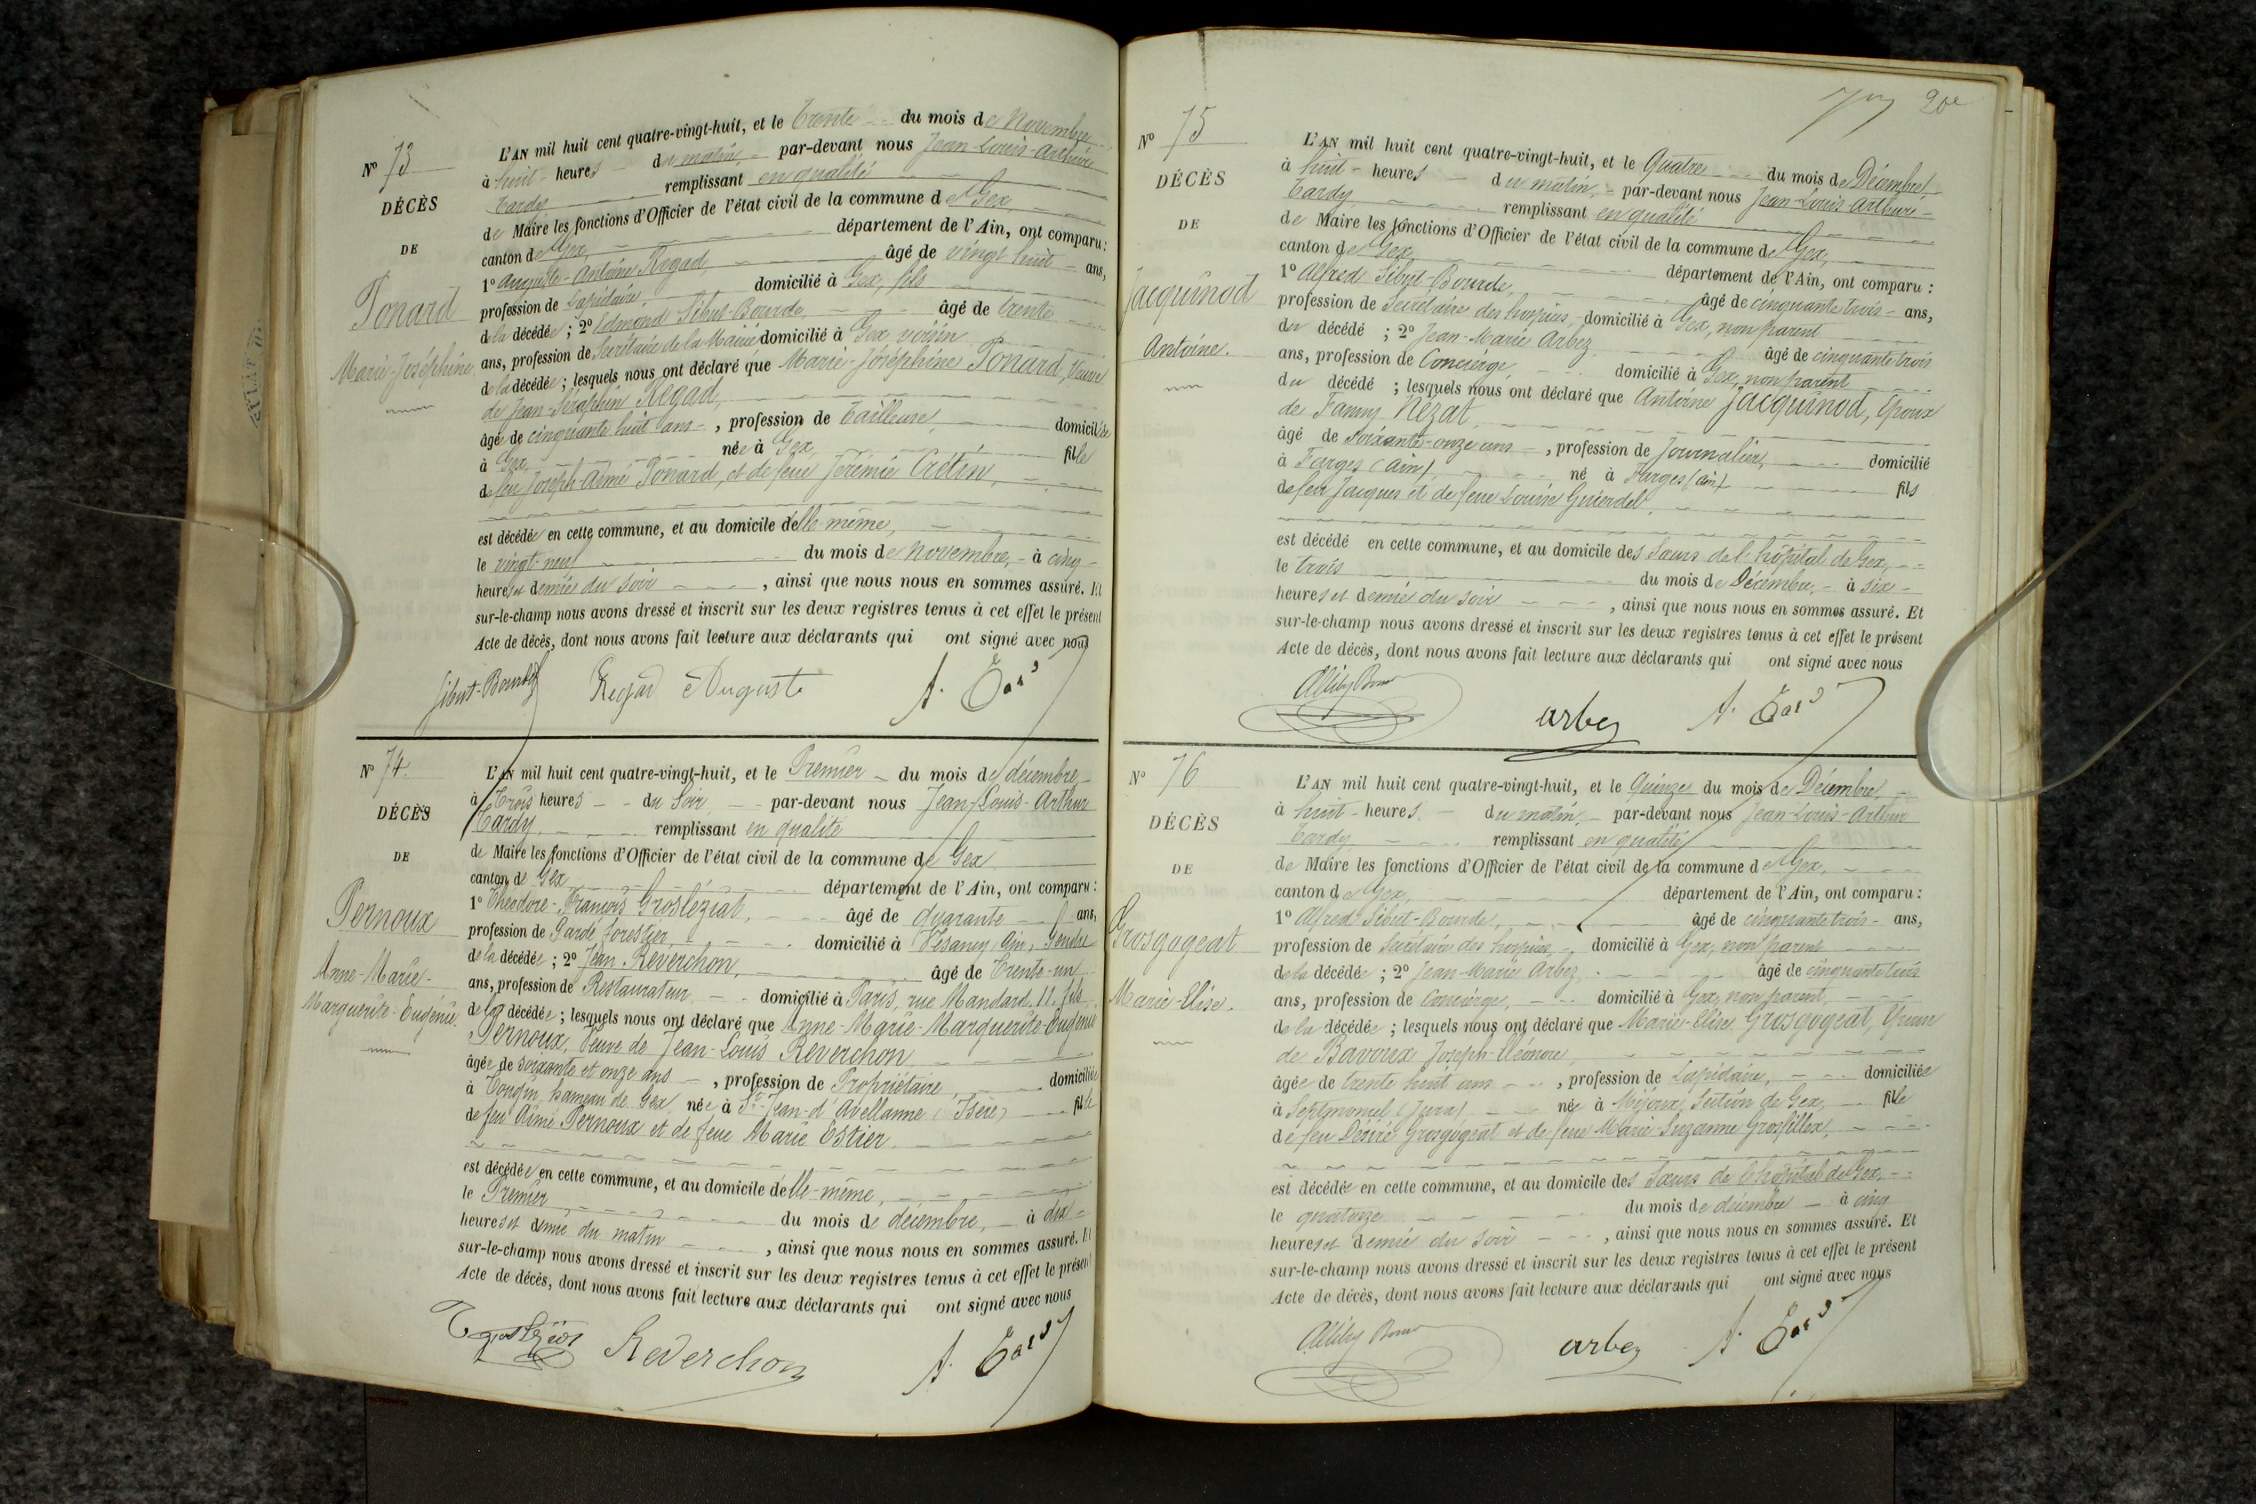 N° 73
DÉCÈS
DE
Ponard
Marie-Joséphine
L'AN mil huit cent quatre-vingt-huit, et le Trente du mois de Novembre
à huit heures du matin, par-devant nous Jean-Louis-Arthur
Tardy remplissant en qualité
de Maire les fonctions d'Officier de l'état civil de la commune de Gex,
canton de Gex, département de l'Ain, ont comparu :
1° Auguste-Antoine Regad, âgé de vingt huit ans,
profession de Lapidaire, domicilié à Gex, fils
de la décédée ; 2° Edmond Sibut-Bourde, âgé de trente
ans, profession de Secrétaire de la Mairie domicilié à Gex, voisin
de la décédée ; lesquels nous ont déclaré que Marie-Joséphine Ponard, Veuve
de Jean-Séraphin Regad,
âgée de cinquante huit ans, profession de Tailleuse, domiciliée
à Gex, née à Gex, fille
de feu Joseph-Aimé Ponard, et de feue Jérémie Crétin,
est décédée en cette commune, et au domicile d'elle-même,
le vingt-neuf du mois de novembre, à cinq
heures et demie du soir, ainsi que nous nous en sommes assuré. Et
sur-le-champ nous avons dressé et inscrit sur les deux registres tenus à cet effet le présent
Acte de décès, dont nous avons fait lecture aux déclarants qui ont signé avec nous
Sibut-Bourde Regad Auguste A. Tardy
N° 74.
DÉCÈS
DE
Pernoux
Anne-Marie-
Marguerite-Eugénie.
L'AN mil huit cent quatre-vingt-huit, et le Premier du mois de décembre
à Trois heures du Soir par-devant nous Jean-Louis-Arthur
Tardy remplissant en qualité
de Maire les fonctions d'Officier de l'état civil de la commune de Gex
canton de Gex département de l'Ain, ont comparu :
1° Théodore-François Grosléziat, âgé de quarante ans,
profession de Garde forestier, domicilié à Vesancy Ain, Gendre
de la décédée ; 2° Jean Reverchon, âgé de Trente-un
ans, profession de Restaurateur domicilié à Paris, rue Mandard 11. fils
de la décédée ; lesquels nous ont déclaré que Anne-Marie-Marguerite-Eugénie
Pernoux, Veuve de Jean-Louis Reverchon
âgée de soixante et onze ans, profession de Propriétaire, domiciliée
à Tougin hameau de Gex, née à St-Jean-d'Avellanne (Isère) fille
de feu Aimé Pernoux et de feue Marie Estier
est décédée en cette commune, et au domicile d'elle-même,
le Premier du mois de décembre, à dix
heures et demie du matin, ainsi que nous nous en sommes assuré. Et
sur-le-champ nous avons dressé et inscrit sur les deux registres tenus à cet effet le présent
Acte de décès, dont nous avons fait lecture aux déclarants qui ont signé avec nous
Reverchon A. Tardy
N° 75
DÉCÈS
DE
Jacquinod
Antoine.
L'AN mil huit cent quatre-vingt-huit, et le Quatre du mois de Décembre
à huit heures du matin, par-devant nous Jean-Louis-Arthur
Tardy remplissant en qualité
de Maire les fonctions d'Officier de l'état civil de la commune de Gex,
canton de Gex, département de l'Ain, ont comparu :
1° Alfred Sibut-Bourde, âgé de cinquante trois ans,
profession de Secrétaire des hospices, domicilié à Gex, non parent
du décédé ; 2° Jean-Marie Arbez âgé de cinquante trois
ans, profession de Concierge, domicilié à Gex, non parent
du décédé ; lesquels nous ont déclaré que Antoine Jacquinod, Epoux
de Fanny Nézat,
âgé de soixante-onze ans, profession de Journalier, domicilié
à Farges (Ain) né à Farges (Ain) fils
de feu Jacques et de feue Louise Guerdet,
est décédé en cette commune, et au domicile des Sœurs de l'hôpital de Gex,
le trois du mois de Décembre, à six
heures et demie du soir, ainsi que nous nous en sommes assuré. Et
sur-le-champ nous avons dressé et inscrit sur les deux registres tenus à cet effet le présent
Acte de décès, dont nous avons fait lecture aux déclarants qui ont signé avec nous
arbez A. Tardy
N° 76
DÉCÈS
DE
Grosgogeat
Marie-Elise.
L'AN mil huit cent quatre-vingt-huit, et le Quinze du mois de Décembre
à huit heures du matin, par-devant nous Jean-Louis-Arthur
Tardy remplissant en qualité
de Maire les fonctions d'Officier de l'état civil de la commune de Gex,
canton de Gex, département de l'Ain, ont comparu :
1° Alfred Sibut-Bourde, âgé de cinquante trois ans,
profession de Secrétaire des hospices, domicilié à Gex, non parent
de la décédée ; 2° Jean-Marie Arbez, âgé de cinquante trois
ans, profession de Concierge, domicilié à Gex, non parent
de la décédée ; lesquels nous ont déclaré que Marie-Elise Grosgogeat, Epouse
de Bavoux Joseph-Eléonore,
âgée de trente huit ans, profession de Lapidaire, domiciliée
à Septmoncel (Jura) née à Mijoux, Section de Gex, fille
de feu Désiré Grosgogeat et de feue Marie-Suzanne Grosfillex,
est décédée en cette commune, et au domicile des Sœurs de l'hôpital de Gex,
le quatorze du mois de décembre à cinq
heures et demie du soir, ainsi que nous nous en sommes assuré. Et
sur-le-champ nous avons dressé et inscrit sur les deux registres tenus à cet effet le présent
Acte de décès, dont nous avons fait lecture aux déclarants qui ont signé avec nous
arbez A. Tardy